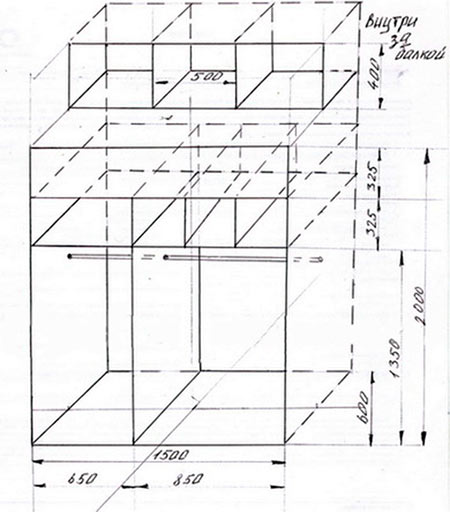 внутри
за
балкой
400
500
325
325
2000
1350
600
1500
650
850